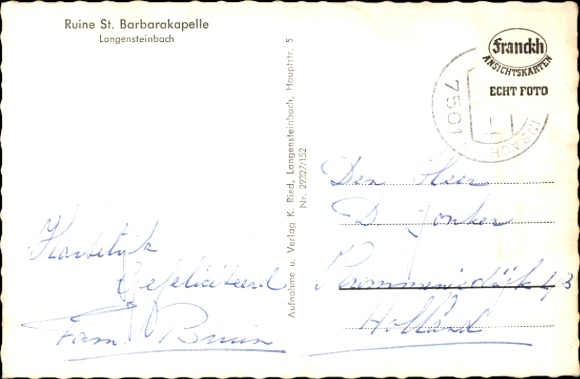 Ruine St. Barbarakapelle
Langensteinbach
Franckh
ANSICHTSKARTEN
ECHT FOTO
7501
Aufnahme u. Verlag K. Ried, Langensteinbach, Hauptstr. 5
Nr. 29327/152
Hartelijk
Gefeliciteerd
Fam. Bruin
Den Heer
D. Jonker
Holland